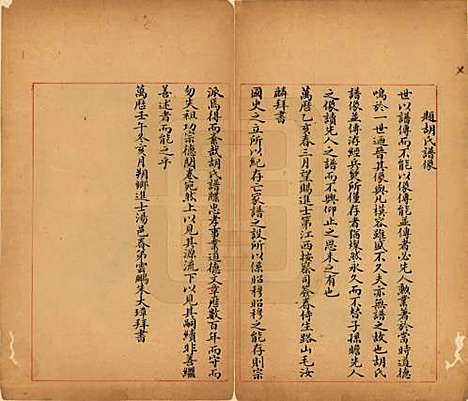 題胡氏譜像
世以譜傳而不能以像傳能並傳者必先人勲業著於當時道德
鳴於一世過晉其像與凡模容雖盛不久夫亦無譜之故也胡氏
譜像並傳游經兵燹所僅存者猶燦然永久而不替子孫瞻先人
之像讀先人之譜而不興仰止之思未之有也
萬歷乙亥春三月望賜進士第江西按察司僉春侍生路山毛汝
麟拜書
國史之立所以紀存亡家譜之設所以係昭穆昭穆之能存則宗
派烏得而紊哉胡氏譜牒忠孝事業道德文章歷數百年而守而
勿失祖功宗德開卷宛然上以見其源流下以見其嗣續非善繼
善述者而能之乎
萬歷壬午冬亥月朔鄉進士湯邑眷弟雲鵬余大璋拜書